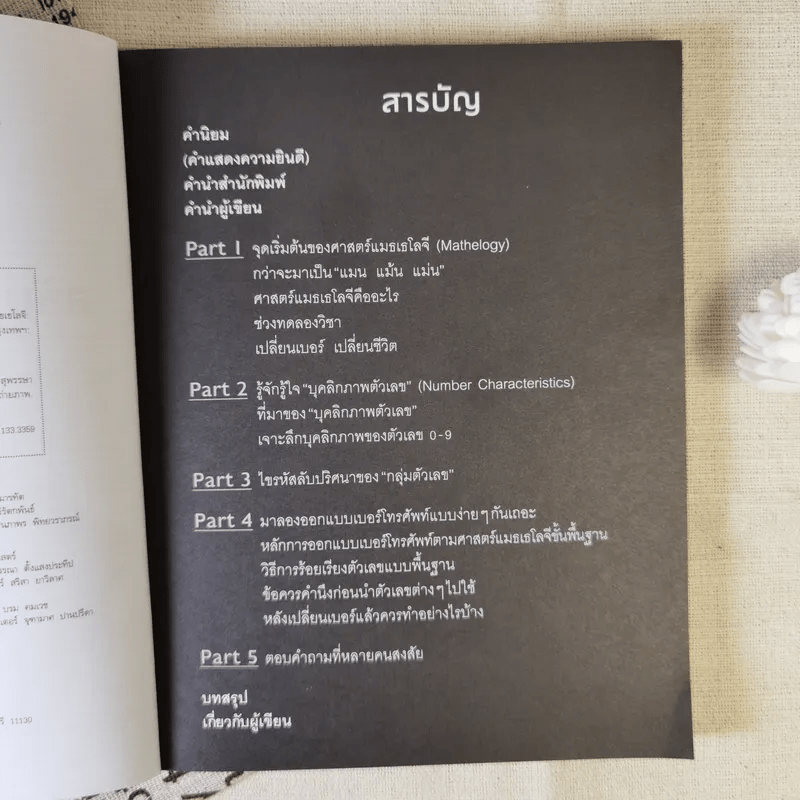 สารบัญ
คำนิยม
(คำแสดงความยินดี)
คำนำสำนักพิมพ์
คำนำผู้เขียน
Part 1 จุดเริ่มต้นของศาสตร์แมธเธโลจี (Mathelogy)
กว่าจะมาเป็น "แมน แม้น แม่น"
ศาสตร์แมธเธโลจีคืออะไร
ช่วงทดลองวิชา
เปลี่ยนเบอร์ เปลี่ยนชีวิต
Part 2 รู้จักรู้ใจ "บุคลิกภาพตัวเลข" (Number Characteristics)
ที่มาของ "บุคลิกภาพตัวเลข"
เจาะลึกบุคลิกภาพของตัวเลข 0-9
Part 3 ไขรหัสลับปริศนาของ "กลุ่มตัวเลข"
Part 4 มาลองออกแบบเบอร์โทรศัพท์แบบง่ายๆ กันเถอะ
หลักการออกแบบเบอร์โทรศัพท์ตามศาสตร์แมธเธโลจีขั้นพื้นฐาน
วิธีการร้อยเรียงตัวเลขแบบพื้นฐาน
ข้อควรคำนึงก่อนนำตัวเลขต่างๆ ไปใช้
หลังเปลี่ยนเบอร์แล้วควรทำอย่างไรบ้าง
Part 5 ตอบคำถามที่หลายคนสงสัย
บทสรุป
เกี่ยวกับผู้เขียน
สุพรรษา
133.3359
11130